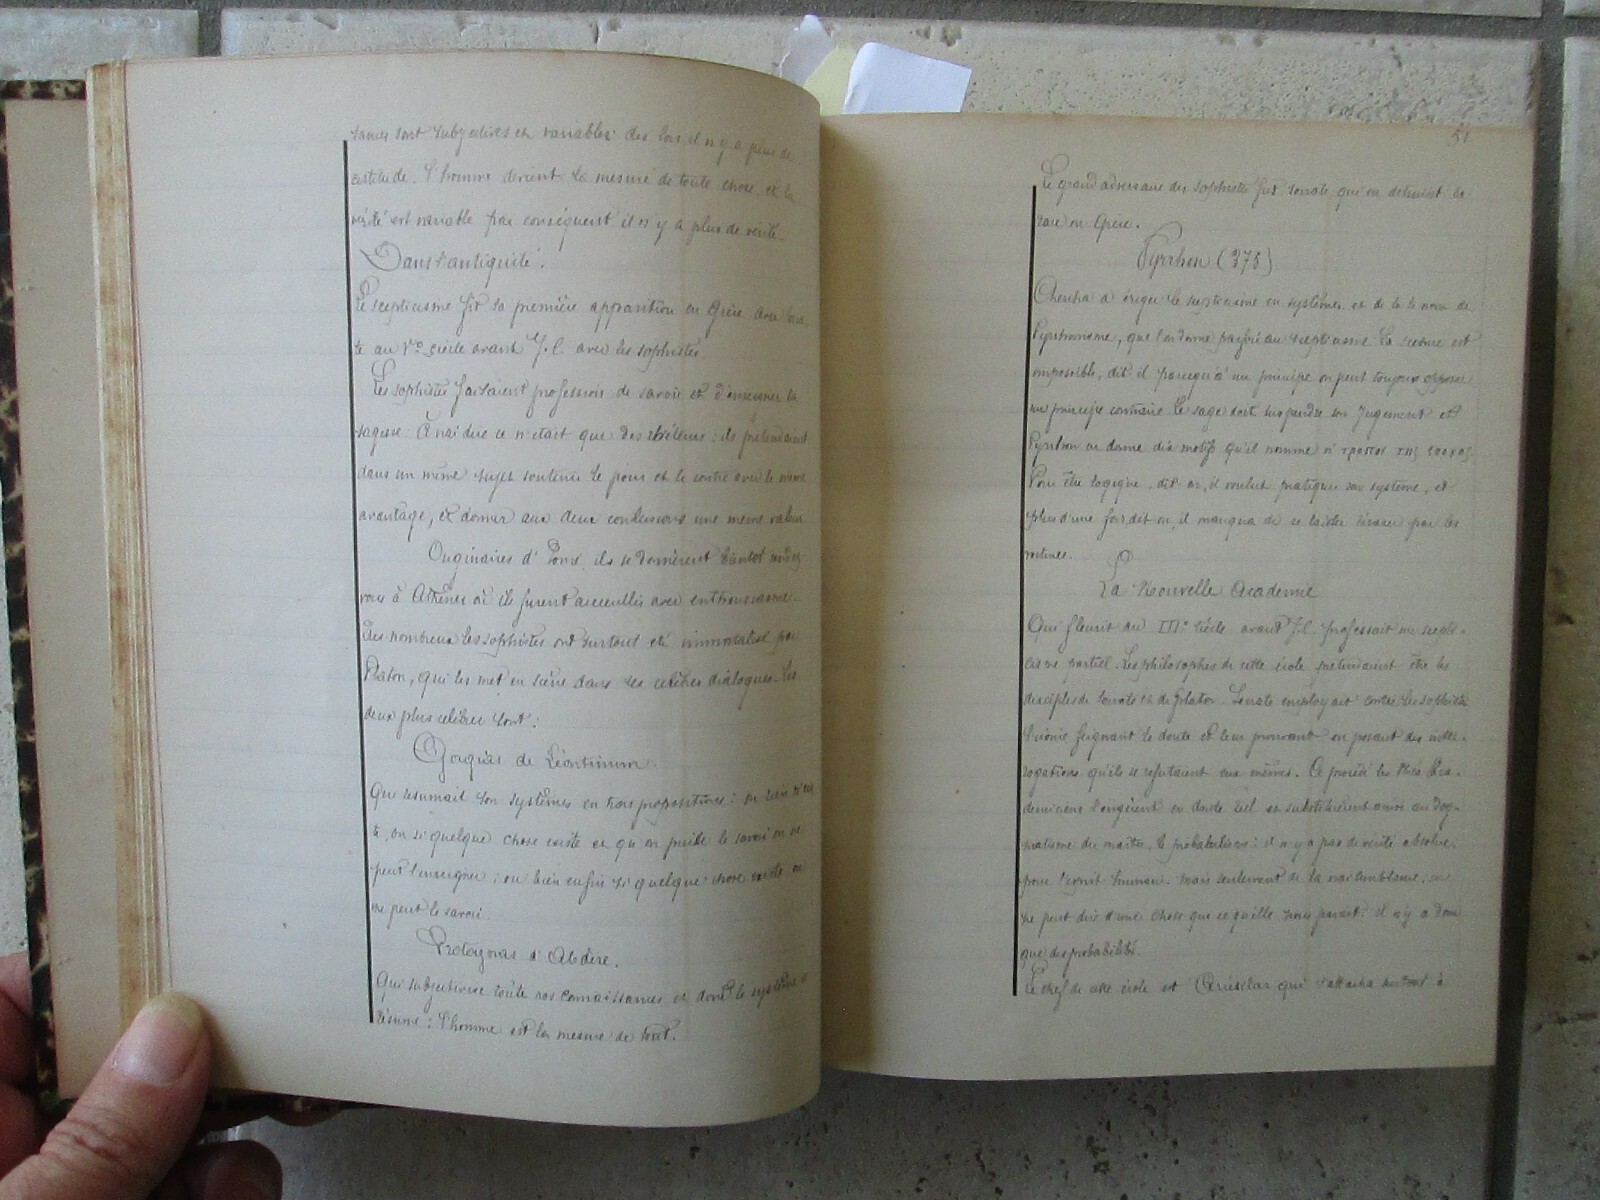 sances sont subjectives et variables dès lors il n'y a plus de
certitude. l'homme devient la mesure de toute chose, et la
vérité est variable par conséquent il n'y a plus de vérité.
Dans l'antiquité.
Le scepticisme fit sa première apparition en Grèce avec
te au Vme siècle avant J.C. avec les sophistes.
Les sophistes faisaient profession de savoir et d'enseigner la
sagesse. A vrai dire ce n'était que des : ils prétendaient
dans un même sujet soutenir le pour et le contre avec le même
avantage, et donner aux deux conclusions une même valeur
Originaires d' ils se donnèrent bientôt rendez-
vous à Athènes où ils furent accueillis avec enthousiasme.
Des nombreux les sophistes ont surtout été immortalisé par
Platon, qui les met en scène dans ses célèbres dialogues. Les
deux plus célèbres sont :
Gorgias de Léontinum.
Qui résumait son systèmes en trois propositions : ou rien n'exis
te, ou si quelque chose existe et qu'on puisse le savoir on ne
peut l'enseigner ; ou bien enfin si quelque chose existe on
ne peut le savoir.
Protagoras d'Abdère.
Qui subjectivise toute nos connaissances et dont le système se
résume : l'homme est la mesure de tout.
51
Le grand adversaire des sophistes fut Socrate qui en détruisit la
race en Grèce.
Pyrrhon (375)
Chercha à ériger le scepticisme en systèmes et de là le nom de
Pyrrhonisme, que l'on donne parfois au scepticisme. La science est
impossible, dit-il parcequ'à un principe on peut toujours opposer
un principe contraire. Le sage doit suspendre son jugement et
Pyrrhon en donne dix motifs qu'il nomme οι τροποι της εποχης
Pour être logique, dit-on, il voulut pratiquer son système, et
plus d'une fois dit on, il manqua de se laisser écraser par les
voitures.
La Nouvelle Academie
Qui fleurit au IIIe siècle avant J.C. professait un scepti-
cisme partiel. Les philosophes de cette école prétendaient être les
disciples de Socrate et de Platon. Socrate employait contre les sophistes
l'ironie feignant le doute et leur prouvant en posant des inter-
rogations qu'ils se réfutaient eux mêmes. Ce procédé les Néo Aca-
demiciens l'érigèrent en doute réel et substituèrent ainsi au dog-
matisme du maître, le probabilisme : il n'y a pas de vérité absolue,
pour l'esprit humain. mais seulement de la vraisemblance, on
ne peut dire d'une chose que ce qu'elle nous parait : il n'y a donc
que des probabilité.
Le chef de cette école est Arcésilas qui s'attacha surtout à